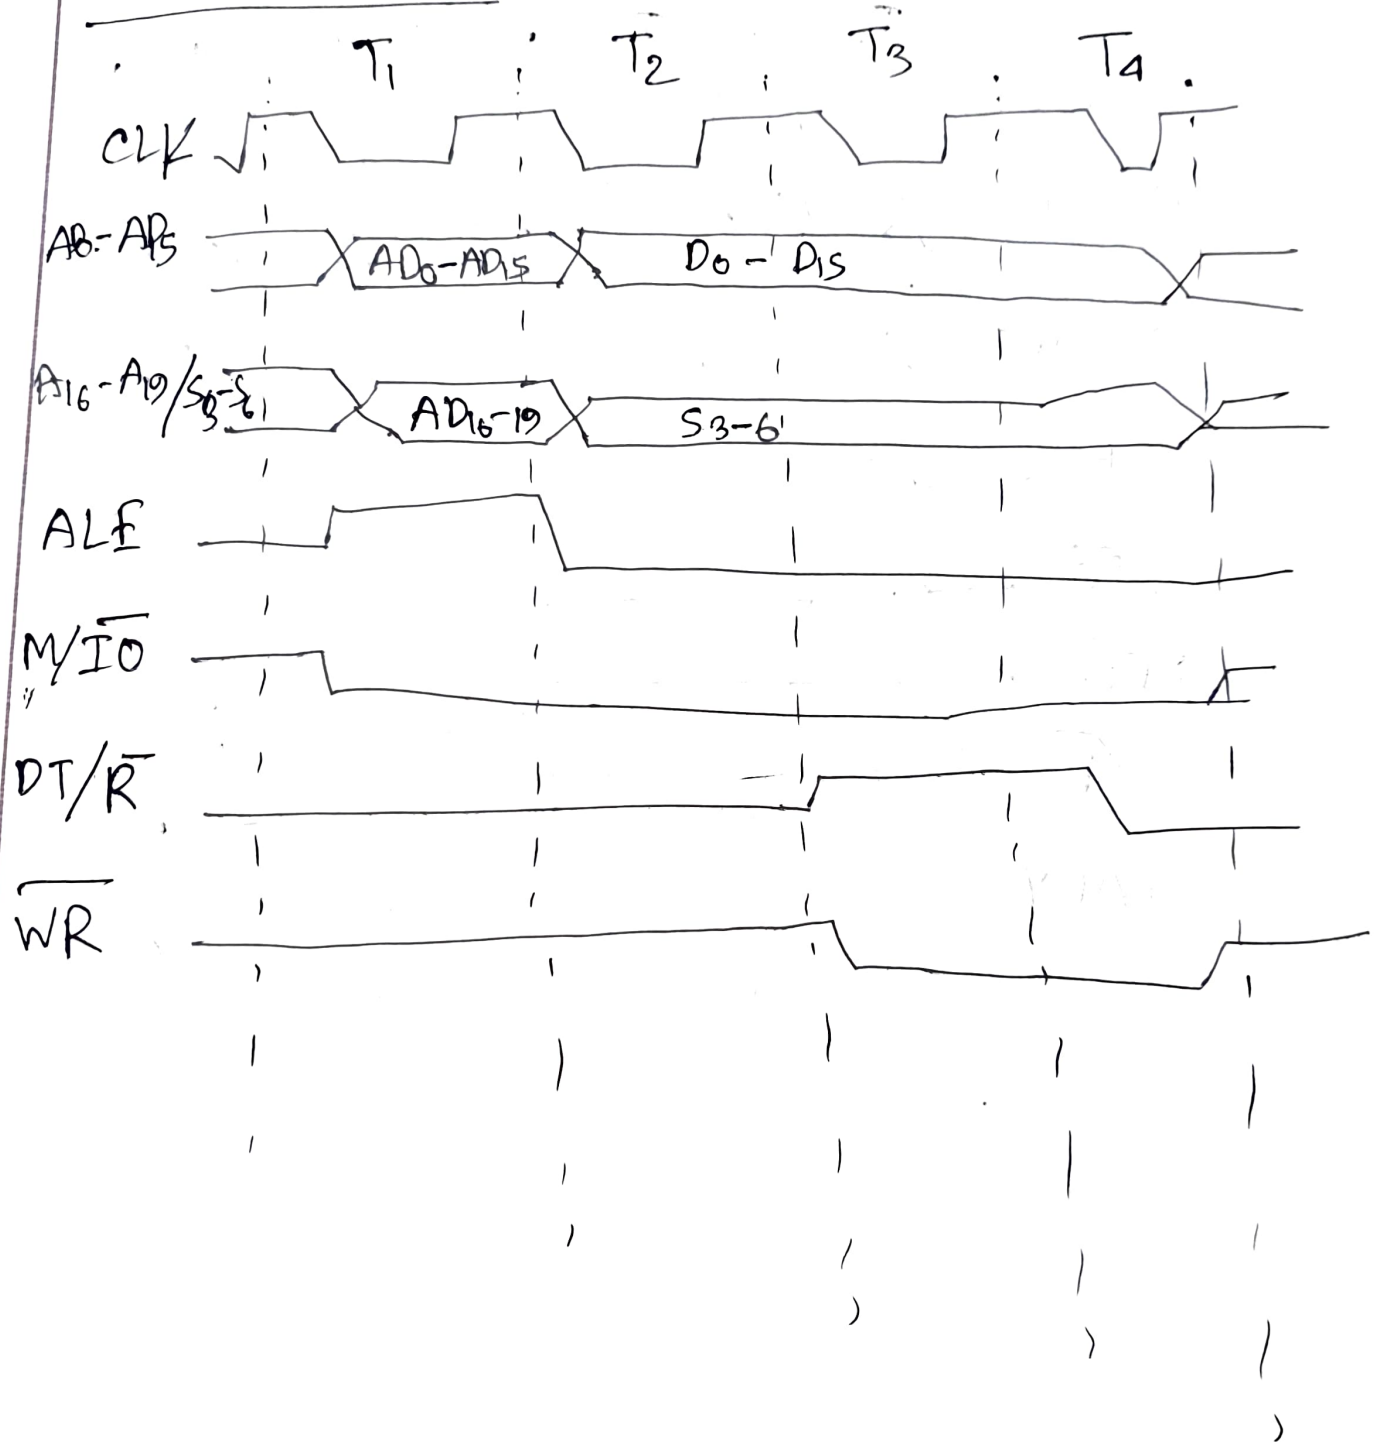 T1 T2 T3 T4
CLK
A0-AD15
AD0-AD15 D0-D15
A16-A19/S3-S6
AD16-19 S3-6
ALE
M/I̅O̅
DT/R̅
W̅R̅